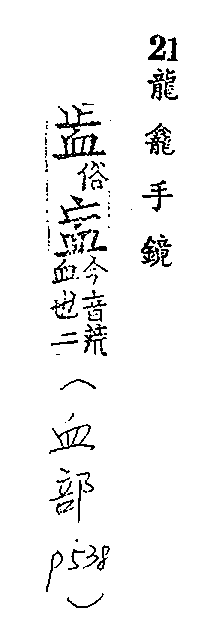 21 龍龕手鏡
俗衁今音荒血也二(血部p538)